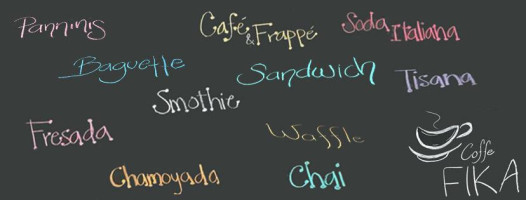 Panninis
Café & Frappé
Soda Italiana
Baguette
Sandwich
Tisana
Smothie
Fresada
Waffle
Coffe
FIKA
Chamoyada
Chai